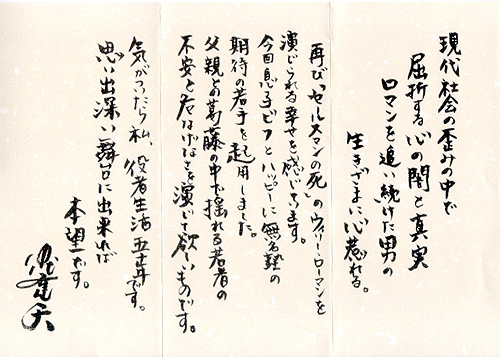 現代社会の歪みの中で
屈折する心の闇と真実
ロマンを追い続けた男の
生きざまに心惹れる。
再び「セルスマンの死」のウィリー・ローマンを
演じられる幸せを感じています。
今回息子ビフとハッピーに無名塾の
期待の若手を起用しました。
父親との葛藤の中で揺れる若者の
不安と危なげなさを演じて欲しいものです。
気がついたら私、役者生活五十年です。
思い出深い舞台に出来れば
本望です。